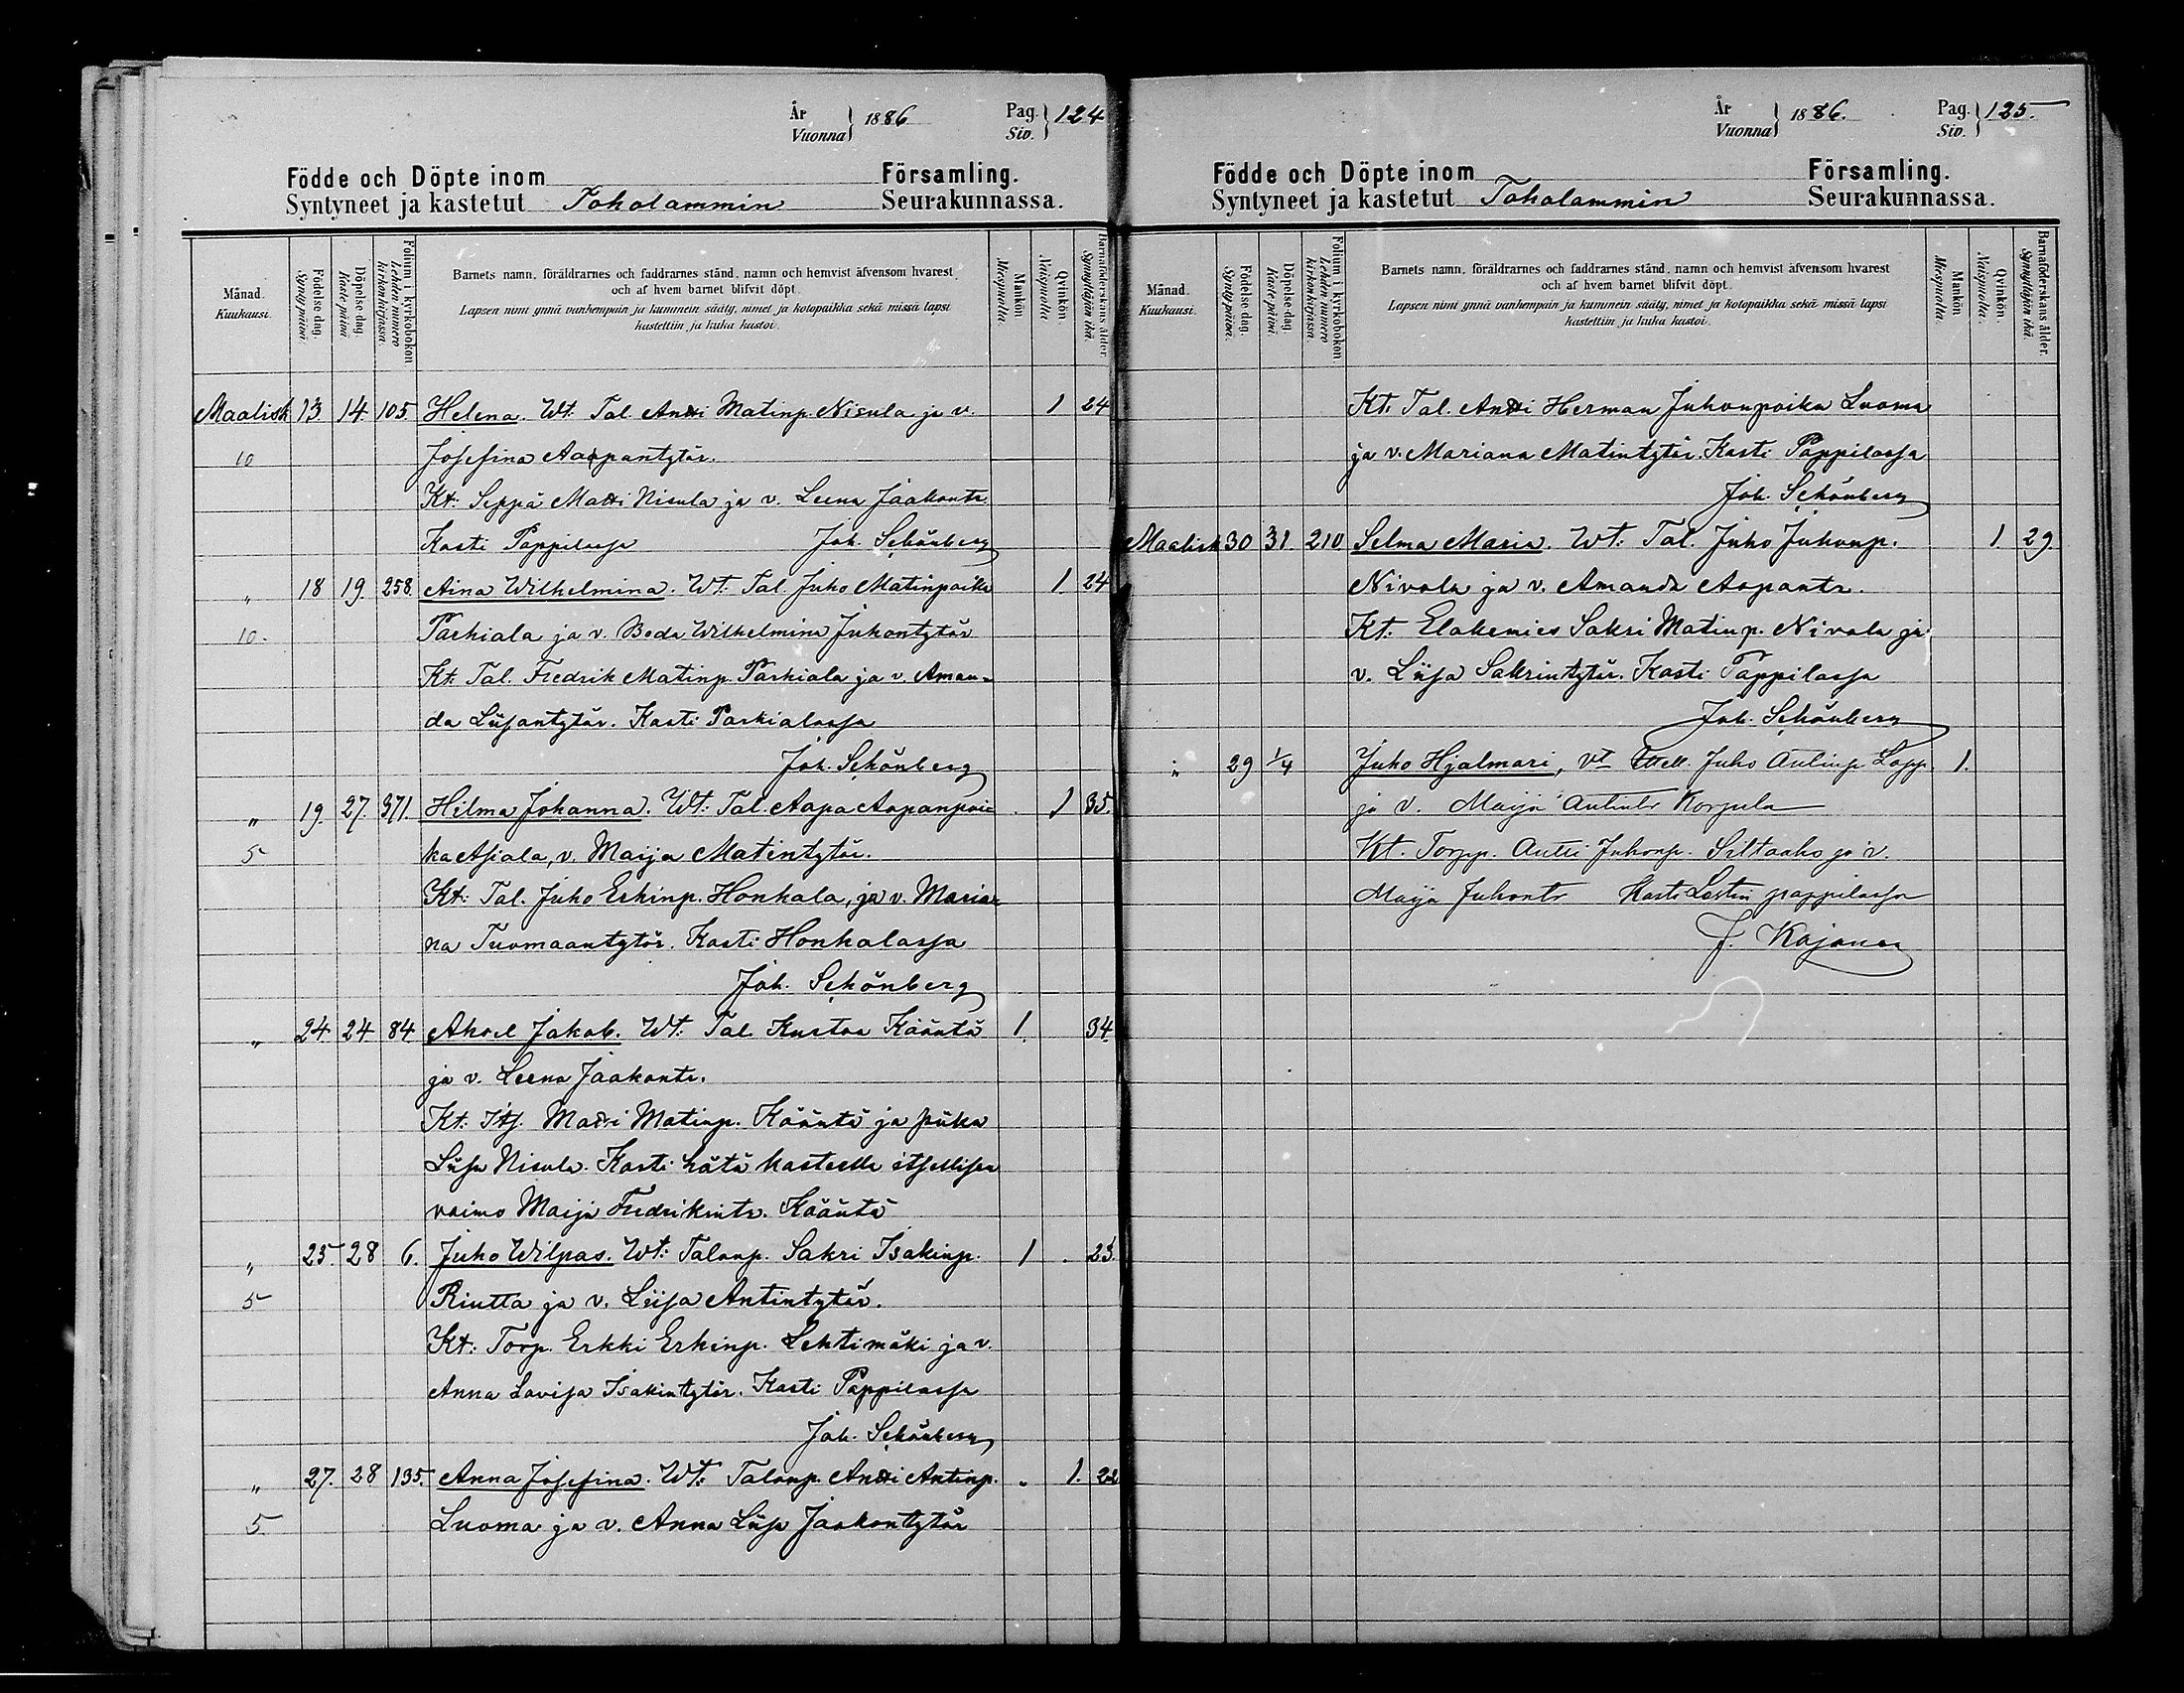 År
Vuonna } 1886
Pag.
Siv. } 124
Födde och Döpte inom Församling.
Syntyneet ja kastetut Toholammin Seurakunnassa.
Månad.
Kuukausi.
Födelse dag.
Synty päivä.
Döpelse dag.
Kaste päivä
Folium i kyrkoboken
Lehden numero kirkonkirjassa.
Barnets namn, föräldrarnes och faddrarnes stånd, namn och hemvist äfvensom hvarest
och af hvem barnet blifvit döpt.
Lapsen nimi ynnä vanhempain ja kummein sääty, nimet ja kotopaikka sekä missä lapsi
kastettiin ja kuka kastoi.
Mankön
Miespuolta.
Qvinkön.
Naispuolta
Barnaföderskans ålder.
Synnyttäjän ikä.
Maalisk 13 14 105 Helena. Wt. Tal. Antti Matinp. Nisula ja v. 1 24
10 Josefina Aapantytär.
Kt: Seppä Matti Nisula ja v. Leena Jaakontr.
Kasti Pappilassa Joh. Schönberg
„ 18 19. 258. Aina Wilhelmina. Wt: Tal. Juho Matinpoika 1. 24
10. Parkiala ja v. Beda Wilhelmina Juhontytär
Kt: Tal. Fredrik Matinp. Parkiala ja v. Aman-
da Liisantytär. Kasti Parkialassa
Joh. Schönberg
„ 19. 27. 371. Hilma Johanna. Wt: Tal. Aapa Aapanpoi- 1 35.
5 ka Asiala, v. Maija Matintytär.
Kt: Tal. Juho Erkinp. Honkala, ja v. Maria-
na Tuomaantytär. Kasti Honkalassa
Joh. Schönberg
„ 24. 24 84. Aksel Jakob. Wt: Tal. Kustaa Kääntä 1. 34.
ja v. Leena Jaakontr.
Kt: Its. Matti Matinp. Kääntä ja piika
Liisa Nisula. Kasti hätä kasteella itsellisen
vaimo Maija Fredrikintr. Kääntä
„ 25. 28 6. Juho Wilpas. Wt: Talonp. Sakri Isakinp. 1 23.
5 Riutta ja v. Liisa Antintytär.
Kt: Torp. Erkki Erkinp. Lehtimäki ja v.
Anna Lovisa Isakintytär. Kasti Pappilassa
Joh. Schönberg
„ 27. 28 135. Anna Josefina. Wt: Talonp. Antti Antinp. 1. 22
5 Luoma ja v. Anna Liisa Jaakontytär
År
Vuonna } 1886.
Pag.
Siv. } 125.
Födde och Döpte inom Församling.
Syntyneet ja kastetut Toholammin Seurakunnassa.
Månad.
Kuukausi.
Födelse dag.
Synty päivä.
Döpelse dag.
Kaste päivä.
Folium i kyrkoboken
Lehden numero kirkonkirjassa.
Barnets namn, föräldrarnes och faddrarnes stånd, namn och hemvist äfvensom hvarest
och af hvem barnet blifvit döpt.
Lapsen nimi ynnä vanhempain ja kummein sääty, nimet ja kotopaikka sekä missä lapsi
kastettiin ja kuka kastoi.
Mankön
Miespuolta.
Qvinkön.
Naispuolta.
Barnaföderskans ålder.
Synnyttäjän ikä.
Kt: Tal. Antti Herman Juhonpoika Luoma
ja v. Mariana Matintytär. Kasti Pappilassa
Joh. Schönberg
Maalisk 30 31 210 Selma Maria. Wt: Tal. Juho Juhonp. 1. 29.
Nivala ja v. Amanda Aapantr.
Kt: Elakemies Sakri Matinp. Nivala ja
v. Liisa Sakrintytär. Kasti Pappilassa
Joh. Schönberg
„ 29 1/4 Juho Hjalmari, Vt Juho Antinp. Lapp. 1.
ja v. Maija Antintr Korpela
Kt. Torpp. Antti Juhonp. Siltaaho ja v.
Maija Juhontr Kasti Lestin pappilassa
J. Kajaner